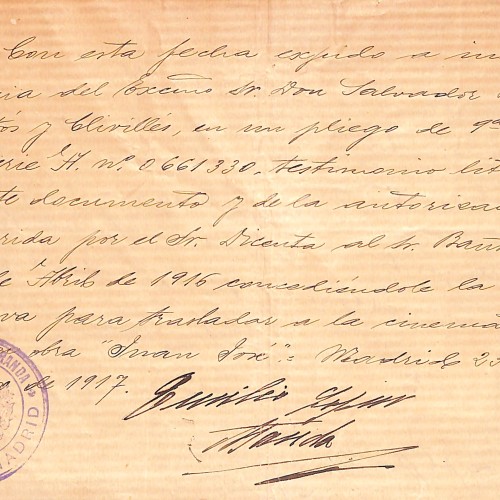 Con esta fecha expido a in
cia del Excmo Sr. Don Salvador
y Clivillés, en un pliego de 9ª
erie A. nº 0661330, testimonio lit
te documento y de la autoriza
rida por el Sr. Dicenta al Sr. Bañ
de Abril de 1916 concediéndole la
va para trasladar a la cinema
obra "Juan José".= Madrid 23
de 1917.
Emilio
Aranda
MADRID